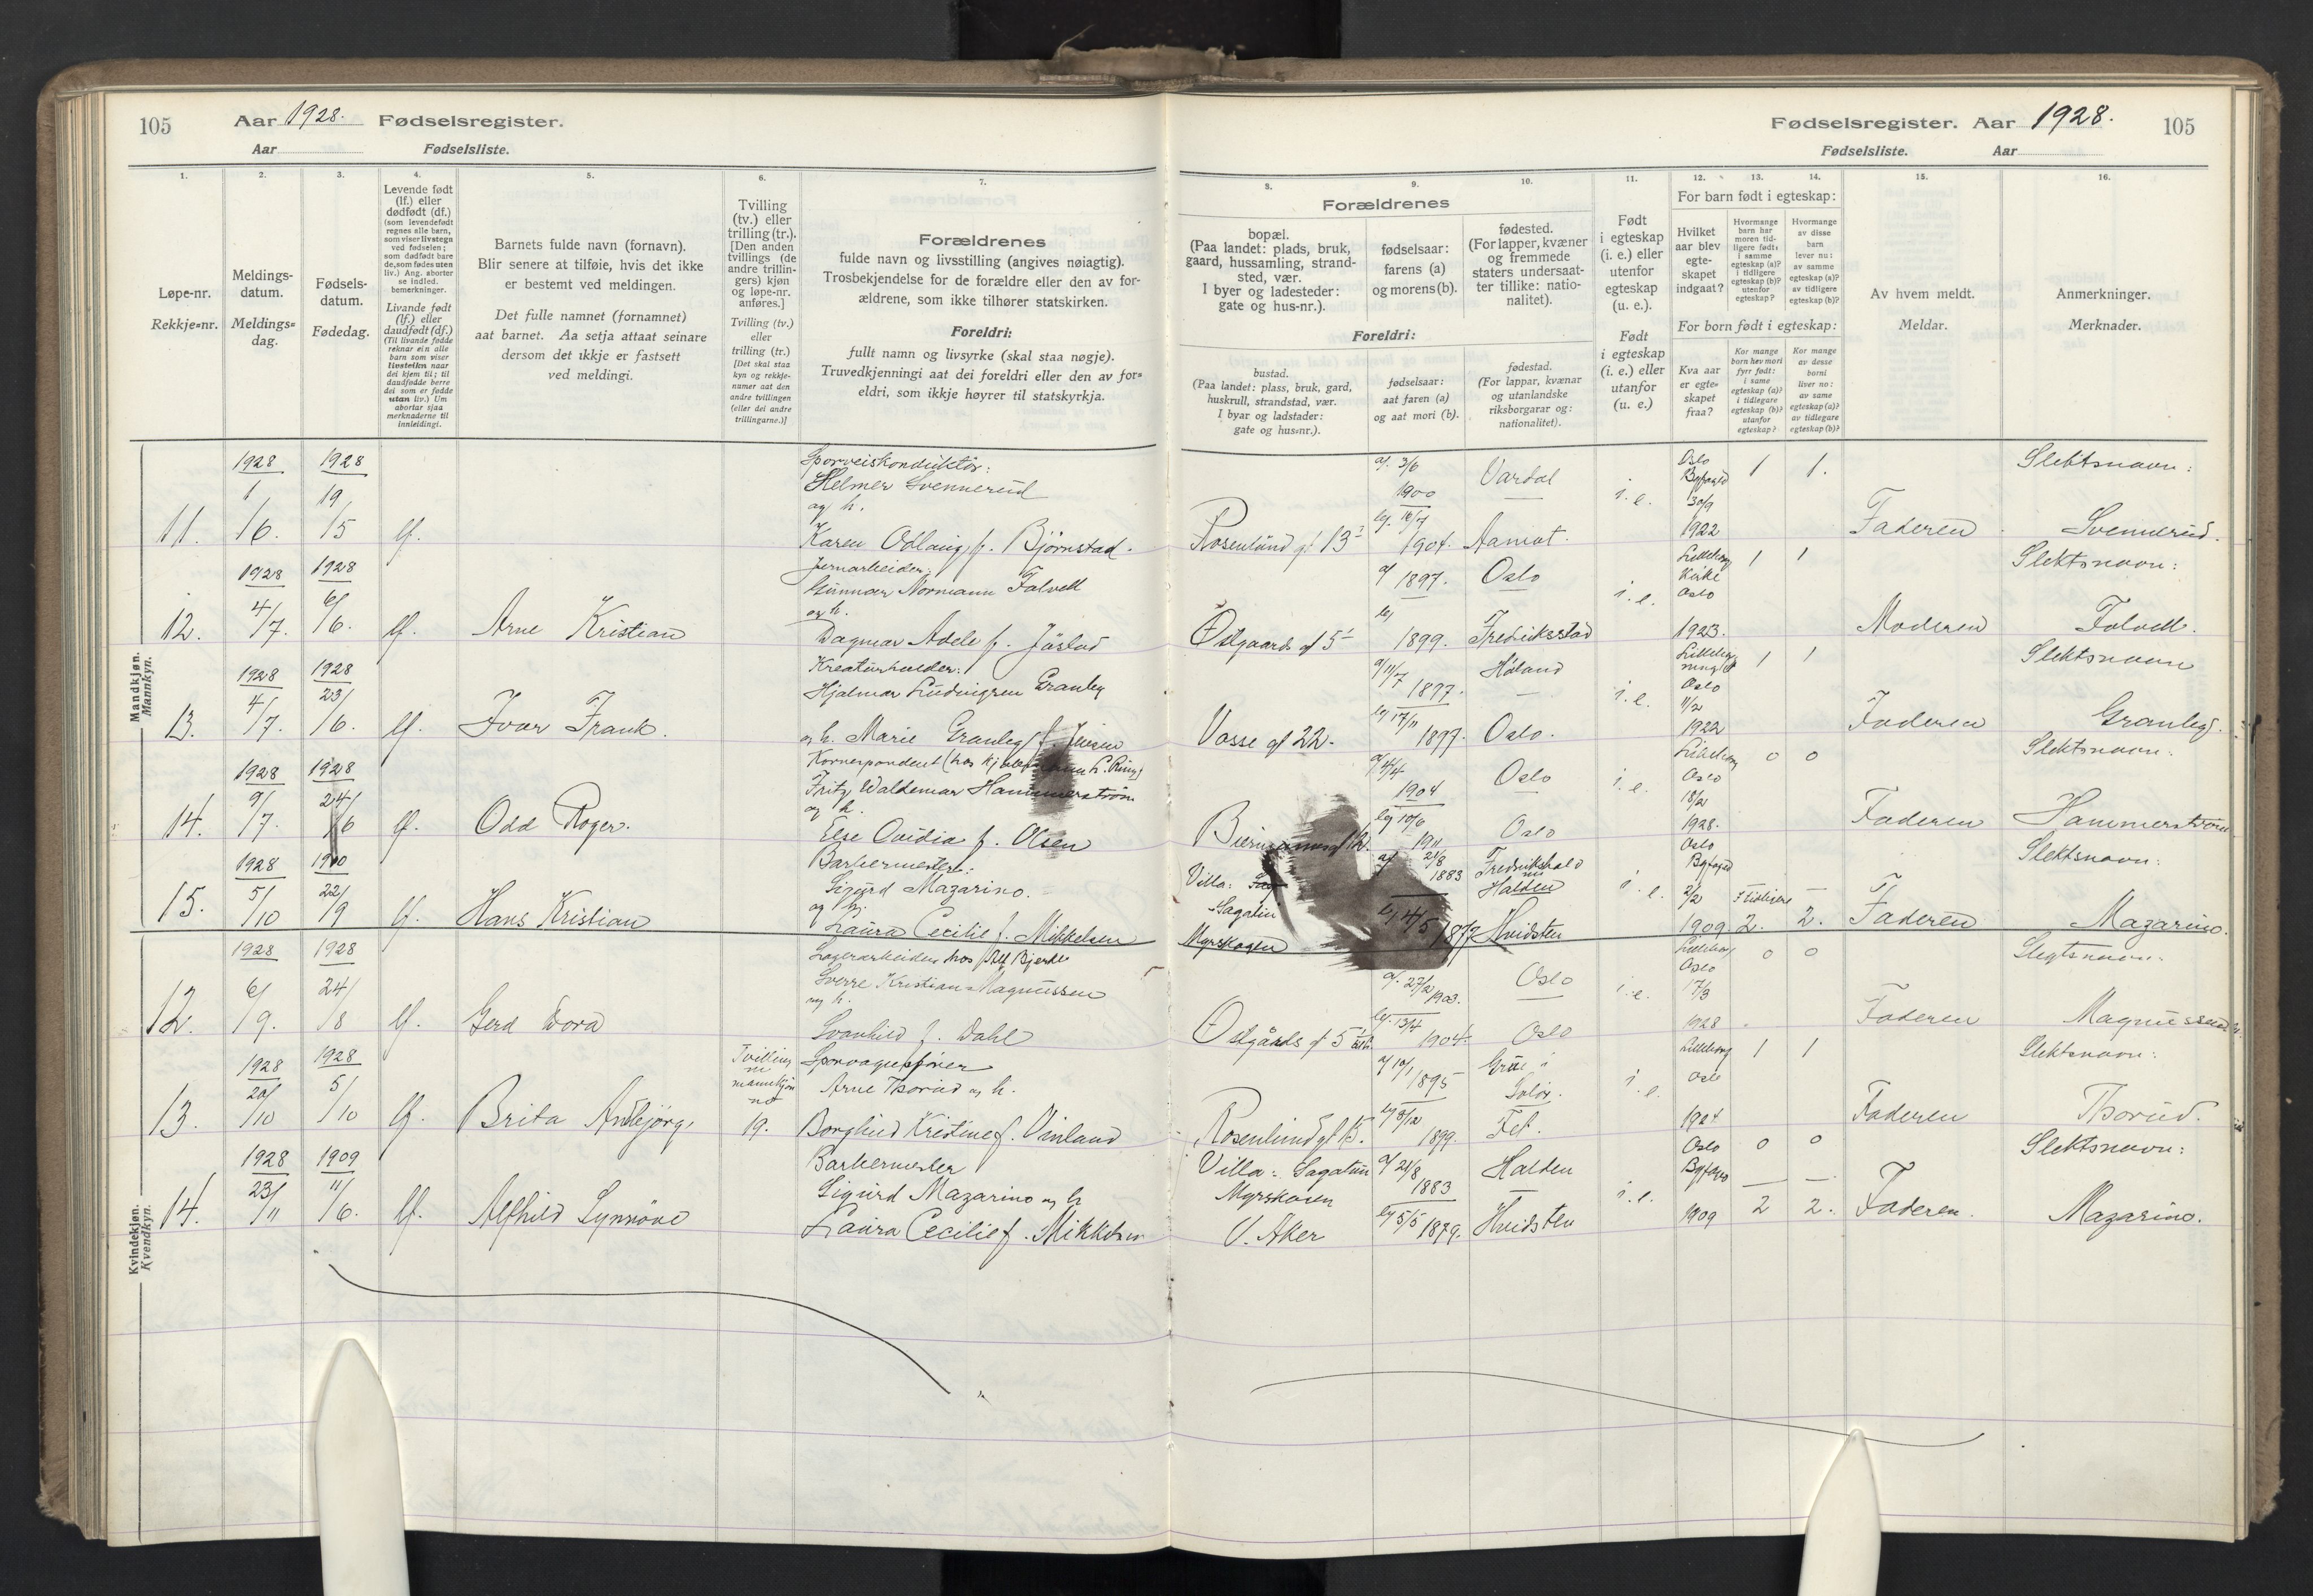 105
Aar 1928. Fødselsregister.
Aar Fødselsliste.
Fødselsregister. Aar 1928.
105
Fødselsliste. Aar
1.
Løpe-nr.
Rekkje=nr.
2.
Meldings-
datum.
Meldings=
dag.
3.
Fødsels-
datum.
Fødedag.
4.
Levende født
(lf.) eller
dødfødt (df.)
(som levendefødt
regnes alle barn,
som viser livstegn
ved fødselen;
som dødfødt bare
de, som fødes uten
liv.) Ang. aborter
se indled.
bemerkninger.
Livande født
(lf.) eller
daudfødt (df.)
(Til livande fødde
reknar ein alle
barn som viser
livsteikn naar
dei kjem til; til
daudfødde berre
dei som er fødde
utan liv.) Um
abortar sjaa
merknaderne til
innleidingi.
5.
Barnets fulde navn (fornavn).
Blir senere at tilføie, hvis det ikke
er bestemt ved meldingen.
Det fulle namnet (fornamnet)
aat barnet. Aa setja attaat seinare
dersom det ikkje er fastsett
ved meldingi.
6.
Tvilling
(tv.) eller
trilling (tr.).
[Den anden
tvillings (de
andre trillin-
gers) kjøn
og løpe-nr.
anføres.]
Tvilling (tv.)
eller
trilling (tr.)
[Det skal staa
kyn og rekkje-
numer aat den
andre tvillingen
(eller dei andre
trillingarne.)]
7.
Forældrenes
fulde navn og livsstilling (angives nøiagtig).
Trosbekjendelse for de forældre eller den av for-
ældrene, som ikke tilhører statskirken.
Foreldri:
fullt namn og livsyrke (skal staa nøgje).
Truvedkjenningi aat dei foreldri eller den av for=
eldri, som ikkje høyrer til statskyrkja.
8.
Forældrenes
bopæl.
(Paa landet: plads, bruk,
gaard, hussamling, strand-
sted, vær.
I byer og ladesteder:
gate og hus-nr.).
Foreldri:
bustad.
(Paa landet: plass, bruk, gard,
huskrull, strandstad, vær.
I byar og ladstader:
gate og hus=nr.).
9.
fødselsaar:
farens (a)
og morens (b).
fødselsaar:
aat faren (a)
og aat mori (b).
10.
fødested.
(For lapper, kvæner
og fremmede
staters undersaat-
ter tillike: natio-
nalitet).
fødestad.
(For lappar, kvænar
og utanlandske
riksborgarar og:
nationalitet).
11.
Født
i egteskap
(i. e.) eller
utenfor
egteskap
(u. e.).
Født
i egteskap
(i. e.) eller
utanfor
(u. e.)
12.
For barn født i egteskap:
Hvilket
aar blev
egte-
skapet
indgaat?
For born født i egteskap:
Kva aar
er egte=
skapet
fraa?
13.
Hvormange
barn har
moren tid-
ligere født:
i samme
egteskap (a)?
i tidligere
egteskap (b)?
utenfor
egteskap?
Kor mange
born hev mori
fyrr født:
i same
egteskap (a)?
i tidlegare
egteskap (b)?
utanfor
egteskap?
14.
Hvormange
av disse
barn
lever nu:
av samme
egteskap (a)?
av tidligere
egteskap (b)?
Kor mange
av desse
borni
liver no:
av same
egteskap (a)?
av tidlegare
egteskap (b)?
15.
Av hvem meldt.
Meldar.
16.
Anmerkninger.
Merknader.
Mandkjøn.
Mannkyn.
11.
1928
1/6.
1928
19/5
lf.
Sporveiskonduktör:
Helmer Svennerud
og h.
Karen Odlaug f. Björnstad.
Rosenlund gt 13
a/ 3/6
1900
1904.
Vardal
Aamot
i. e.
Oslo
Byfogd
30/9
1922
1
1.
Faderen
Slektsnavn:
Svennerud.
12.
1928
4/7.
1928
6/6.
lf.
Arne Kristian
Jernarbeider:
Gunnar Normann Falvell
og h.
Dagmar Adele f.
Østgaards gt 5
a/ 1897.
1899.
Oslo
Fredriksstad
i. e.
Lilleborg
Kirke
Oslo
1923.
1
1
Moderen
Slektsnavn:
Falvell.
13.
1928
4/7.
1928
23/6.
lf.
Ivar Frank.
Hjalmar Ludvigsen Granley
og h. Marie Granley f. Jensen
Vosse gt 22.
1897.
17/11
1897.
Høland
Oslo.
i. e.
Oslo
11/2
1922
1
1
Faderen
Slektsnavn
Granley.
14.
1928
9/7.
1928
24/6
lf.
Odd Roger.
Fritz Waldemar Hammerstrøm
og h.
Else Ovidia f. Olsen
1904
10/6
1911
Oslo
Oslo
i. e.
Lilleborg
Oslo
18/2
1928.
0
0
Faderen
Slektsnavn:
Hammerstrøm
15.
1928
5/10
1910
22/9
lf.
Hans Kristian
Barbermester:
Sigurd Mazarino.
og h.
Laura Cecilie f. Mikkelsen
Villa:
Sagatun
Myrskogen
a/ 21/8
1883
Fredrikshald
nu
Halden
Hvidsten
i. e.
Oslo
Byfogd
2/2
1909
Tidligere
2.
2.
Faderen
Slektsnavn:
Mazarino.
Kvindekjøn.
Kvendkyn.
12.
1928
6/9.
1928
24/8
lf.
Gerd Dora
Lagerarbeider hos Alf Bjerke
Sverre Kristian Magnussen
og h.
Svanhild f. Dahl
Østgårds gt 5
a/ 27/2 1903.
13/4
1904.
Oslo
Oslo
i. e.
Lilleborg
Oslo
17/3
1928
0
0
Faderen
Slegtsnavn:
Magnussen
13.
1928
20/10
1928
5/10
lf.
Brita Annbjørg.
Tvilling
m
mannkjøn
no
19.
Sporvognsfører
Arne Thorud og h.
Borghild Kristine f. Vinland
Rosenlund gt
a/ 10/1 1895
8/12
1899.
Grue i
Solør.
Fet.
i. e.
Lilleborg
Oslo
1924
1
1
Faderen
Slektsnavn:
Thorud.
14.
1928
23/11
1909
11/6.
lf.
Alfhild Synnöve
Barbermester
Sigurd Mazarino og h
Laura Cecilie f. Mikkelsen
Villa: Sagatun
Myrskoven
V. Aker
a/ 21/8
1883
5/5 1879.
Halden
Hvidsten
i. e.
Oslo
Byfogd
1909
0
0
2
2.
Faderen.
Slektsnavn:
Mazarino.